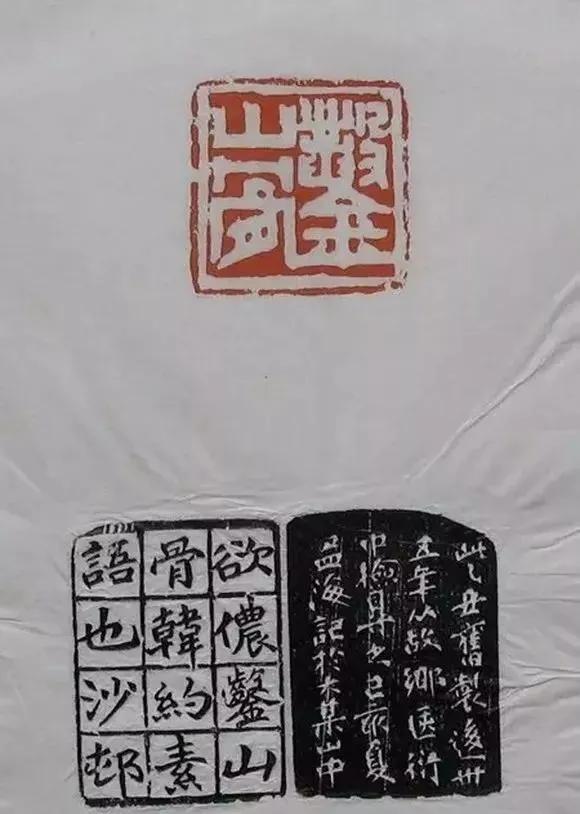 鑿
山骨
欲儂鑿山
骨韓約素
語也沙邨
此乙丑舊製後卅
五年从故鄉匧衍
中撿得己亥夏
孟海記於大某山中